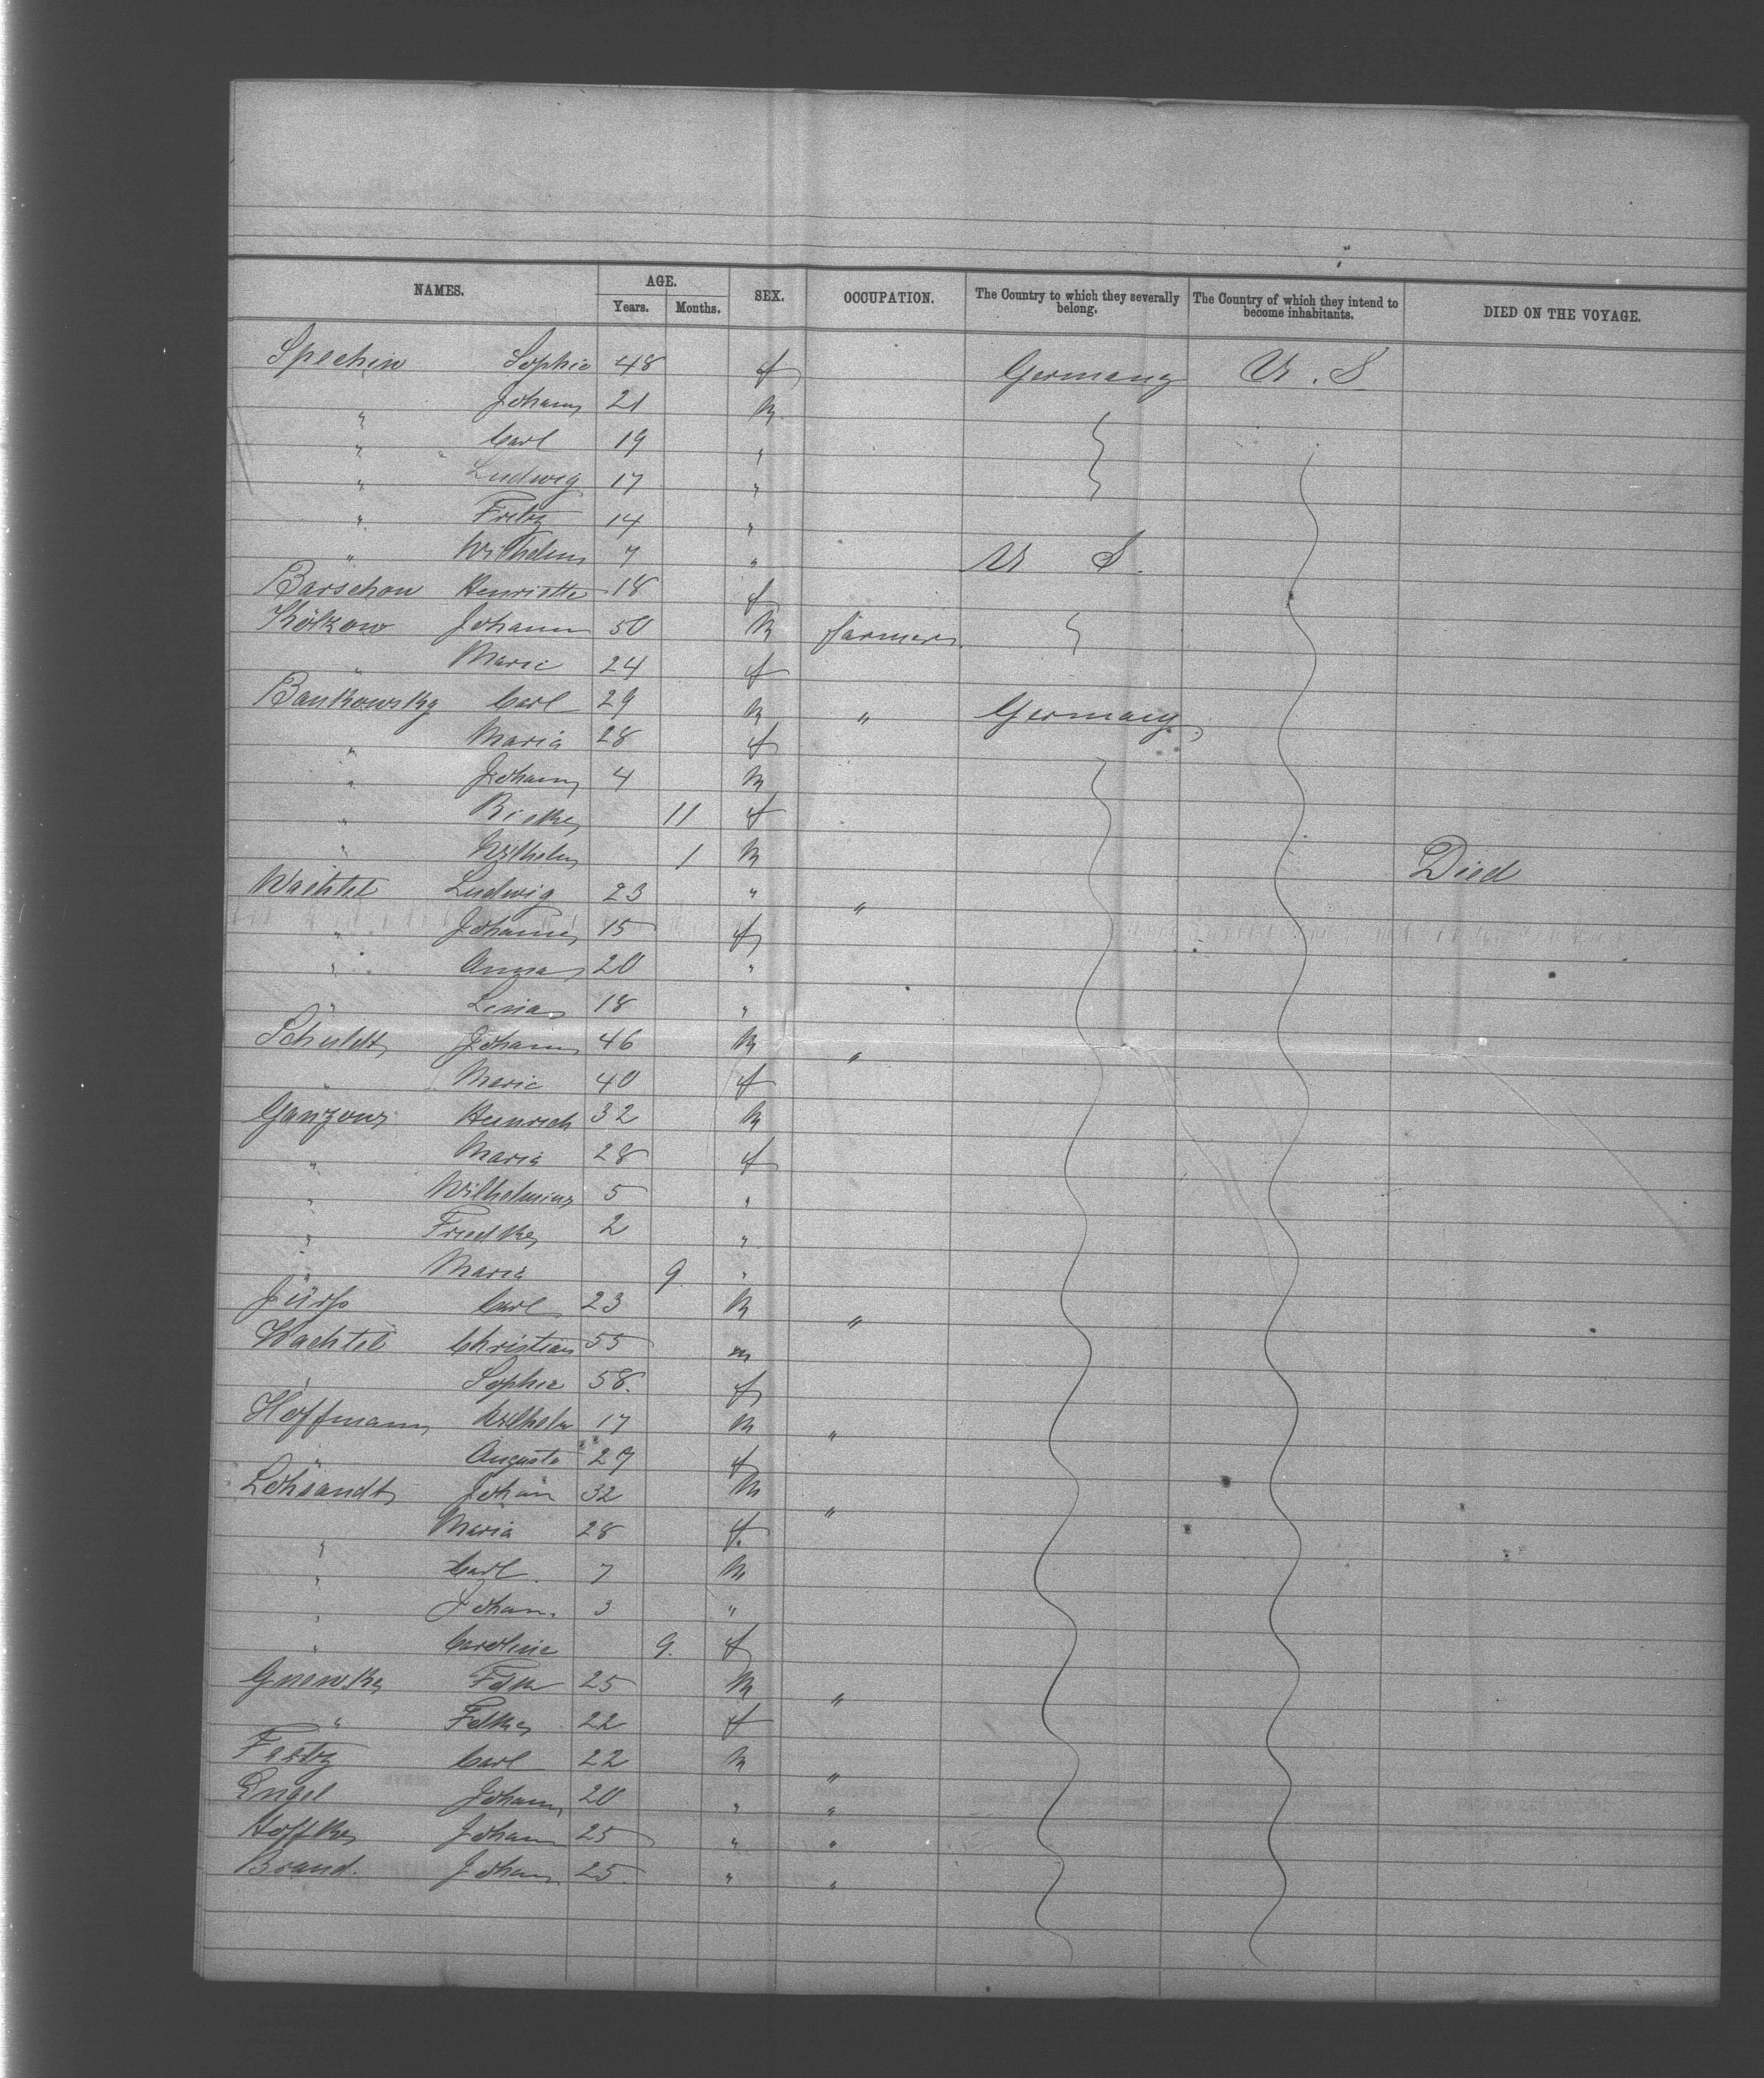 NAMES. AGE. SEX. OCCUPATION. The Country to which they severally belong. The Country of which they intend to become inhabitants. DIED ON THE VOYAGE.
Years. Months.
Spechin Sophie 48 f Germany U. S
" Johann 21 m
" Carl 19 "
" Ludwig 17 "
" Fritz 14 "
" Wilhelm 7 " U S.
Barschow Henriette 18 f
Kölzow Johann 50 m farmer
" Marie 24 f
Bankowsky Carl 29 m " Germany
" Maria 28 f
" Johann 4 m
" Rieke 11 f
" Wilhelm 1 m Died
Wachtel Ludwig 23 " "
" Johanna 15 f
" Anna 20 "
" Lina 18 "
Schuldt Johann 46 m "
" Marie 40 f
Ganzow Heinrich 32 m
" Maria 28 f
" Wilhelmine 5 "
" Friedke 2 "
" Maria 9. "
Jürss Carl 23 m "
Wachtel Christian 55 m
" Sophie 58. f
Hoffmann Wilhelm 17 m "
" Augusta 27 f
Löhsandt Johan 32 m "
" Maria 28 f.
" Carl. 7 m
" Johan. 3 "
" Caroline 9. f
Gnewke Fdk 25 m "
" Fdke 22 f
Carl 22 m "
Engel Johann 20 " "
Hoffke Johann 25 " "
Brand. Johann 25. " "